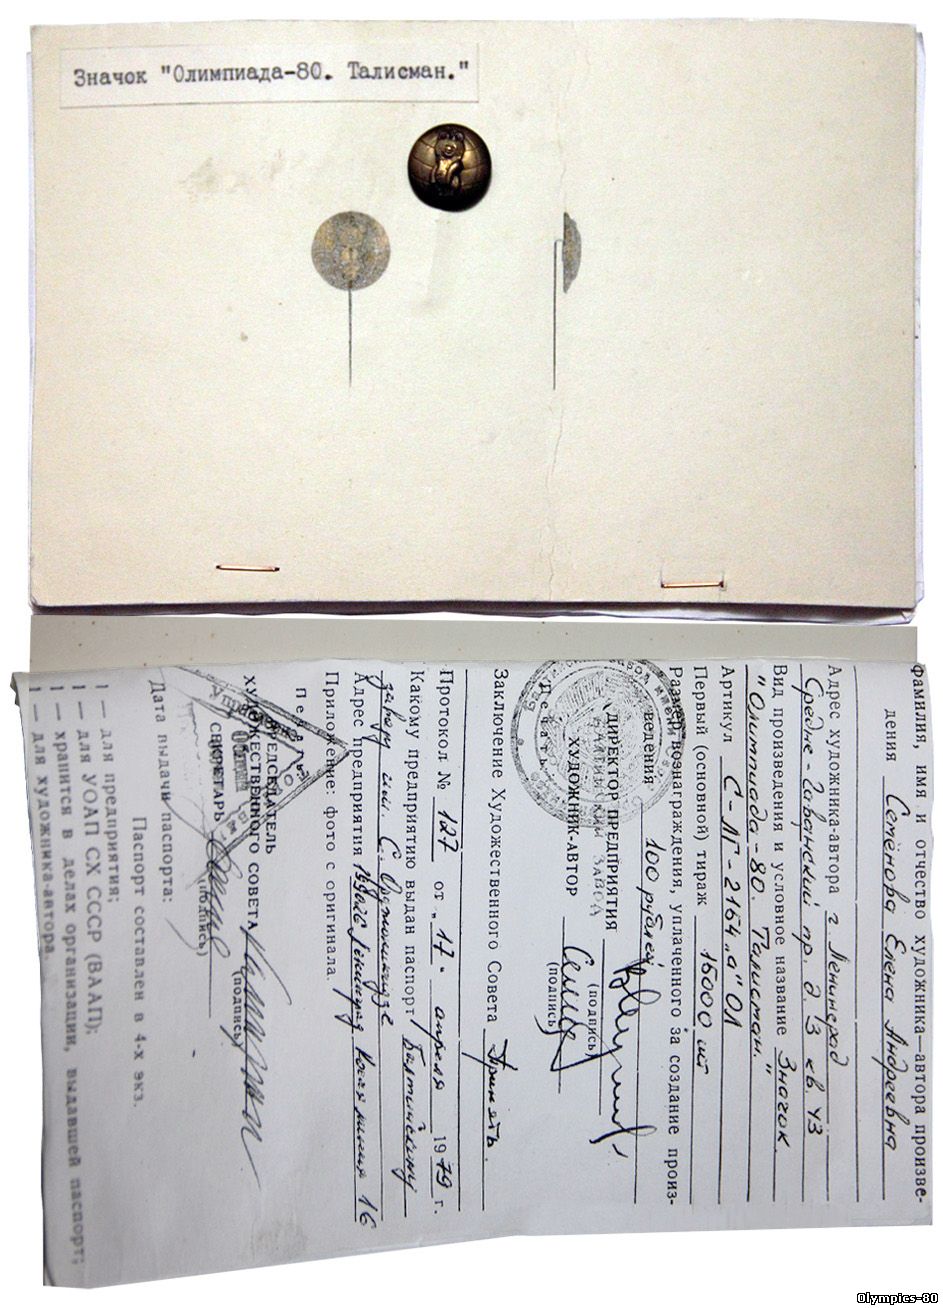 Значок "Олимпиада-80. Талисман."
Фамилия, имя и отчество художника—автора произве-
дения Семёнова Елена Андреевна
Адрес художника-автора г. Ленинград
Средне-Гаванский пр. д. 3 кв. 43
Вид произведения и условное название Значок.
"Олимпиада-80. Талисман."
Артикул С-ЛГ-2164 „а" ОЛ
Первый (основной) тираж 15000 шт
Размер вознаграждения, уплаченного за создание произ-
ведения 100 рублей
ДИРЕКТОР ПРЕДПРИЯТИЯ
(подпись)
Печать
ХУДОЖНИК-АВТОР
(подпись)
Заключение Художественного Совета Принять.
Протокол № 127 от „17" апреля 1979 г.
Какому предприятию выдан паспорт Балтийскому
заводу им. С. Орджоникидзе
Адрес предприятия 199026 Ленинград Кос. линия 16
Приложение: фото с оригинала.
Печать
ПРЕДСЕДАТЕЛЬ
ХУДОЖЕСТВЕННОГО СОВЕТА
(подпись)
СЕКРЕТАРЬ
(подпись)
Дата выдачи паспорта:
Паспорт составлен в 4-х экз.
1 — для предприятия;
1 — для УОАП СХ СССР (ВААП);
1 — хранится в делах организации, выдавшей паспорт;
1 — для художника-автора.
Olympics-80